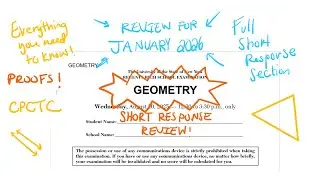 Everything
you need
to know!
PROOFS!
CPCTC
REVIEW FOR
JANUARY 2026
Full
Short
Response
Section
GEOMETRY
The University of the State of New York
REGENTS HIGH SCHOOL EXAMINATION
GEOMETRY
Wednesday, August 20, 2025 — 12:30 to 3:30 p.m., only
SHORT RESPONSE
REVIEW!
Student Name:
School Name:
The possession or use of any communications device is strictly prohibited when taking
this examination. If you have or use any communications device, no matter how briefly,
your examination will be invalidated and no score will be calculated for you.